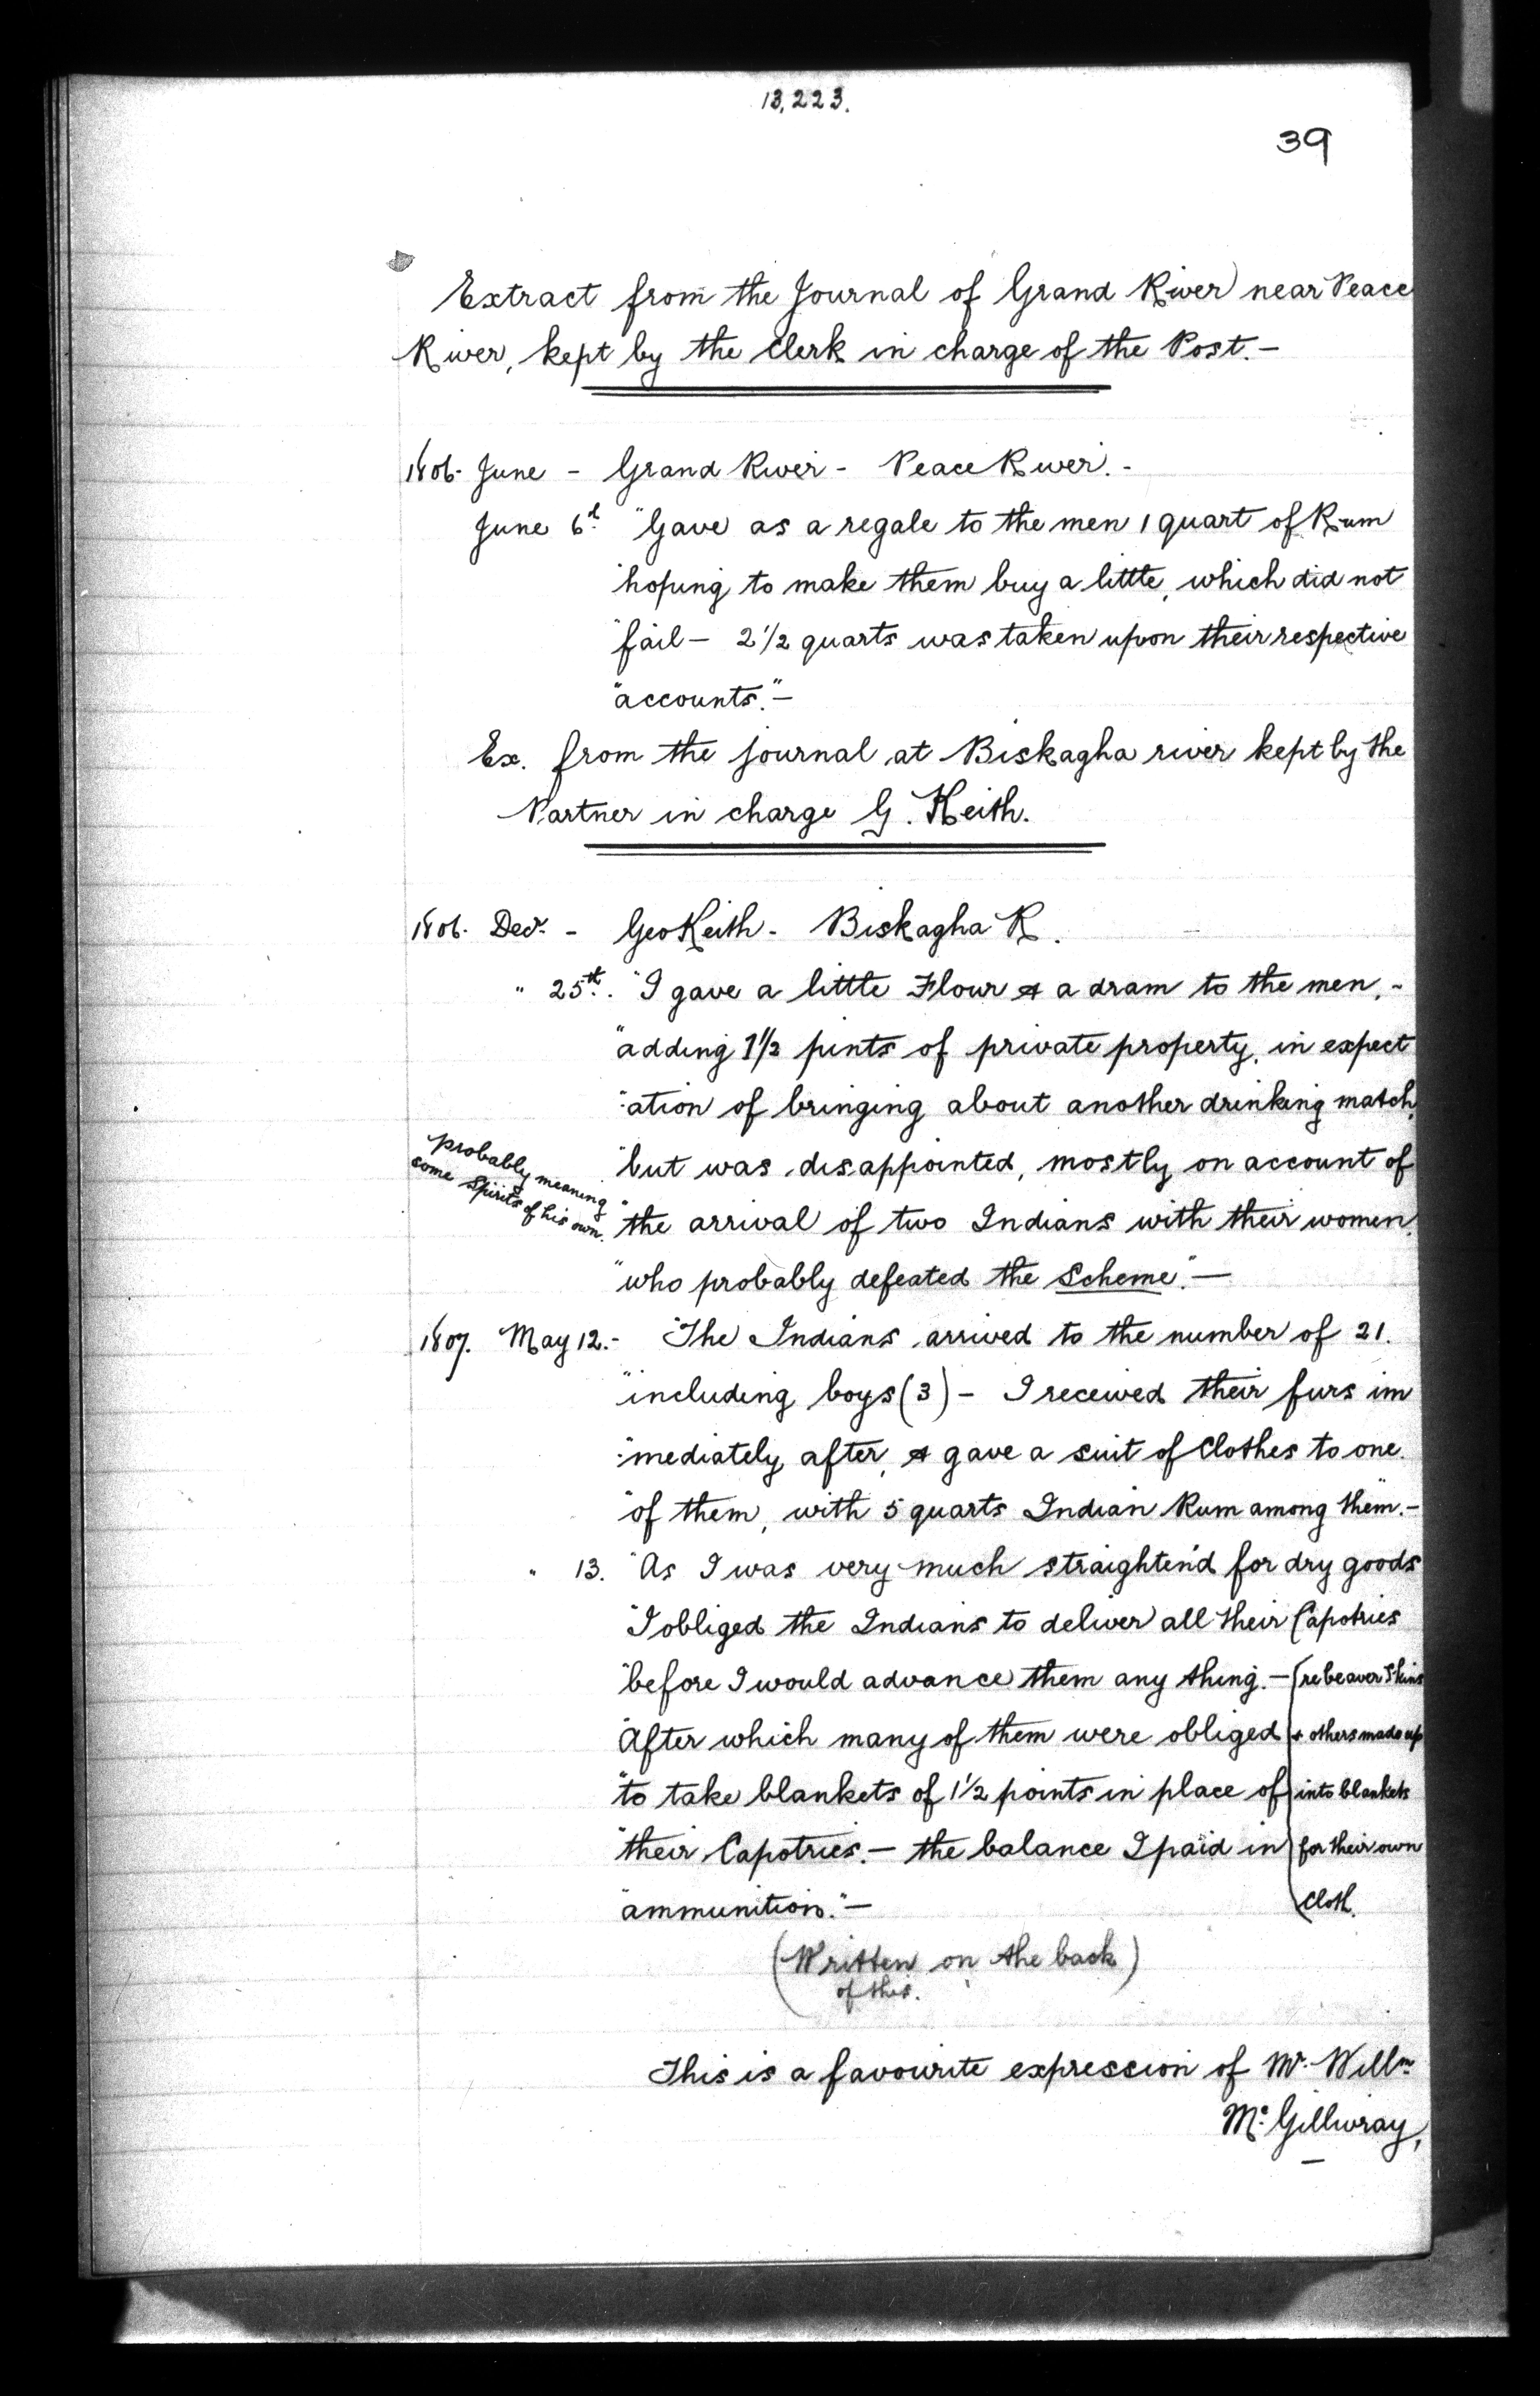 13,223.
39
Extract from the Journal of Grand River near Peace
River, kept by the Clerk in charge of the Post.—
1806. June - Grand River - Peace River. -
June 6th "Gave as a regale to the men 1 quart of Rum
"hoping to make them buy a little, which did not
"fail— 2 1/2 quarts was taken upon their respective
"accounts."—
Ex. from the journal at Biskagha river kept by the
Partner in charge G. Keith.
1806. Decr. - Geo Keith - Biskagha R.
" 25th. "I gave a little Flour & a dram to the men, -
"adding 1 1/2 pints of private property, in expect
"ation of bringing about another drinking match,
"but was disappointed, mostly on account of
probably meaning
some spirits of his own.
"the arrival of two Indians with their women,
"who probably defeated the Scheme."—
1807. May 12.- "The Indians arrived to the number of 21.
"including boys (3) - I received their furs im
"mediately after, & gave a suit of Clothes to one
"of them, with 5 quarts Indian Rum among them.—
" 13. "As I was very much straighten'd for dry goods
"I obliged the Indians to deliver all their Capotries
"before I would advance them any thing.— (re beaver Skins
"After which many of them were obliged + others made up
"to take blankets of 1 1/2 points in place of into blankets
"their Capotries.— the balance I paid in for their own
"ammunition."— Cloth.
(Written on the back)
of this.
This is a favourite expression of Mr. Willm
Mc. Gillivray,